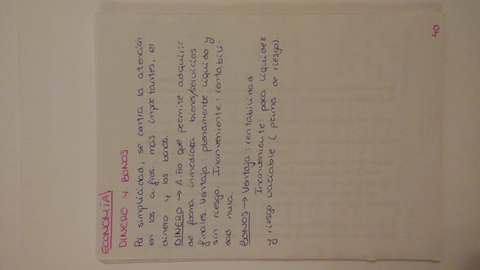 ECONOMÍA
DINERO Y BONOS.
Por simplicidad, se centra la atención
en los a.fros más importantes, el
dinero y los bonos.
DINERO → A.fro que permite adquirir
de forma inmediata bienes/servicios
finales. Ventaja: plenamente líquido y
sin riesgo. Inconveniente: rentabili-
dad nula.
BONOS → Ventaja: rentabilidad
Inconveniente: poca liquidez
y riesgo variable (prima de riesgo).
40